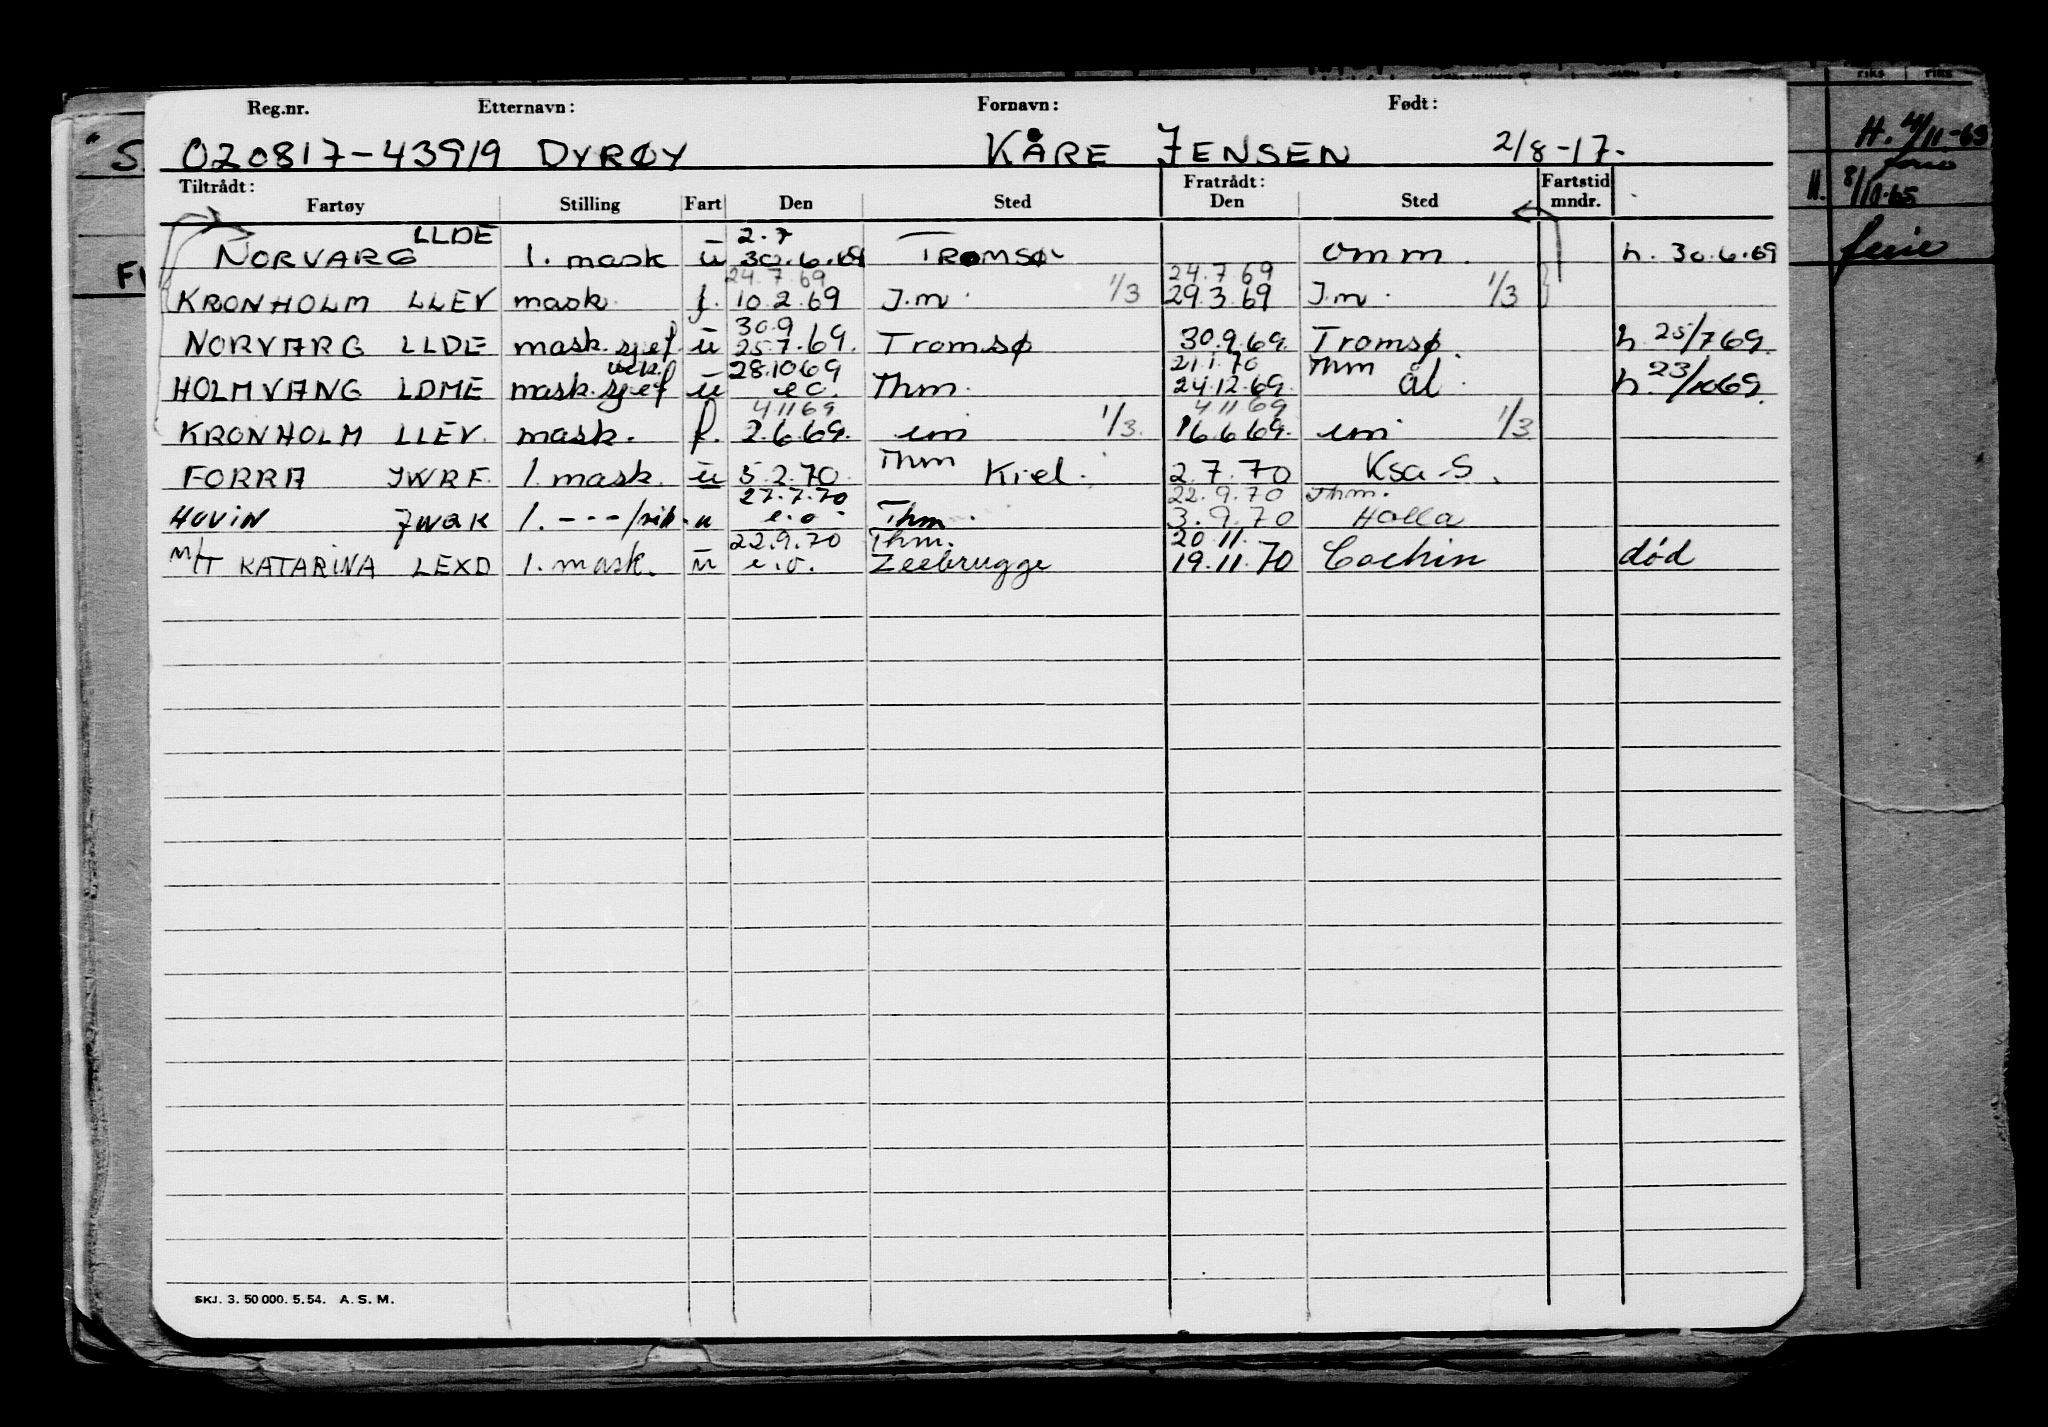 Reg.nr. Etternavn: Fornavn: Født:
020817-43919 DYRØY KÅRE JENSEN 2/8-17.
Tiltrådt: Fratrådt: Fartstid
Fartøy Stilling Fart Den Sted Den Sted mndr.
LLDE 2.7
NORVARG 1. mask u 30.6.69 TROMSØ omm. h. 30.6.69
24.7.69 24.7.69
KRONHOLM LLEV mask. f. 10.2.69 I.m. 1/3 29.3.69 I.m. 1/3
30.9
NORVARG LLDE mask. sjef. u 25.7.69. Tromsø 30.9.69. Tromsø. h. 25/7 69.
vik. 28.10 69 21.1.70 Thm
HOLMVANG LDME mask. sjef u eo. Thm. 24.12.69. Ål. h. 23/10 69.
4 11 69 4 11 69
KRONHOLM LLEV. mask. f. 2.6.69. im 1/3. 16.6.69. im 1/3
Thm
FORRA JWRF. 1. mask. u 5.2.70. Kiel. 2.7.70 Ksa-S.
27.7.70 22.9.70 Thm.
HOVIN JWQK 1. - - - / vik. u e.o. Thm. 3.9.70 Holla
22.9.70 Thm. 20.11.
M/T KATARINA LEXD 1. mask. u e.o. Zeebrugge 19.11.70 Cochin død
SKJ. 3. 50 000. 5. 54. A. S. M.
H. 4/11-63
H. 8/10.65
ferie